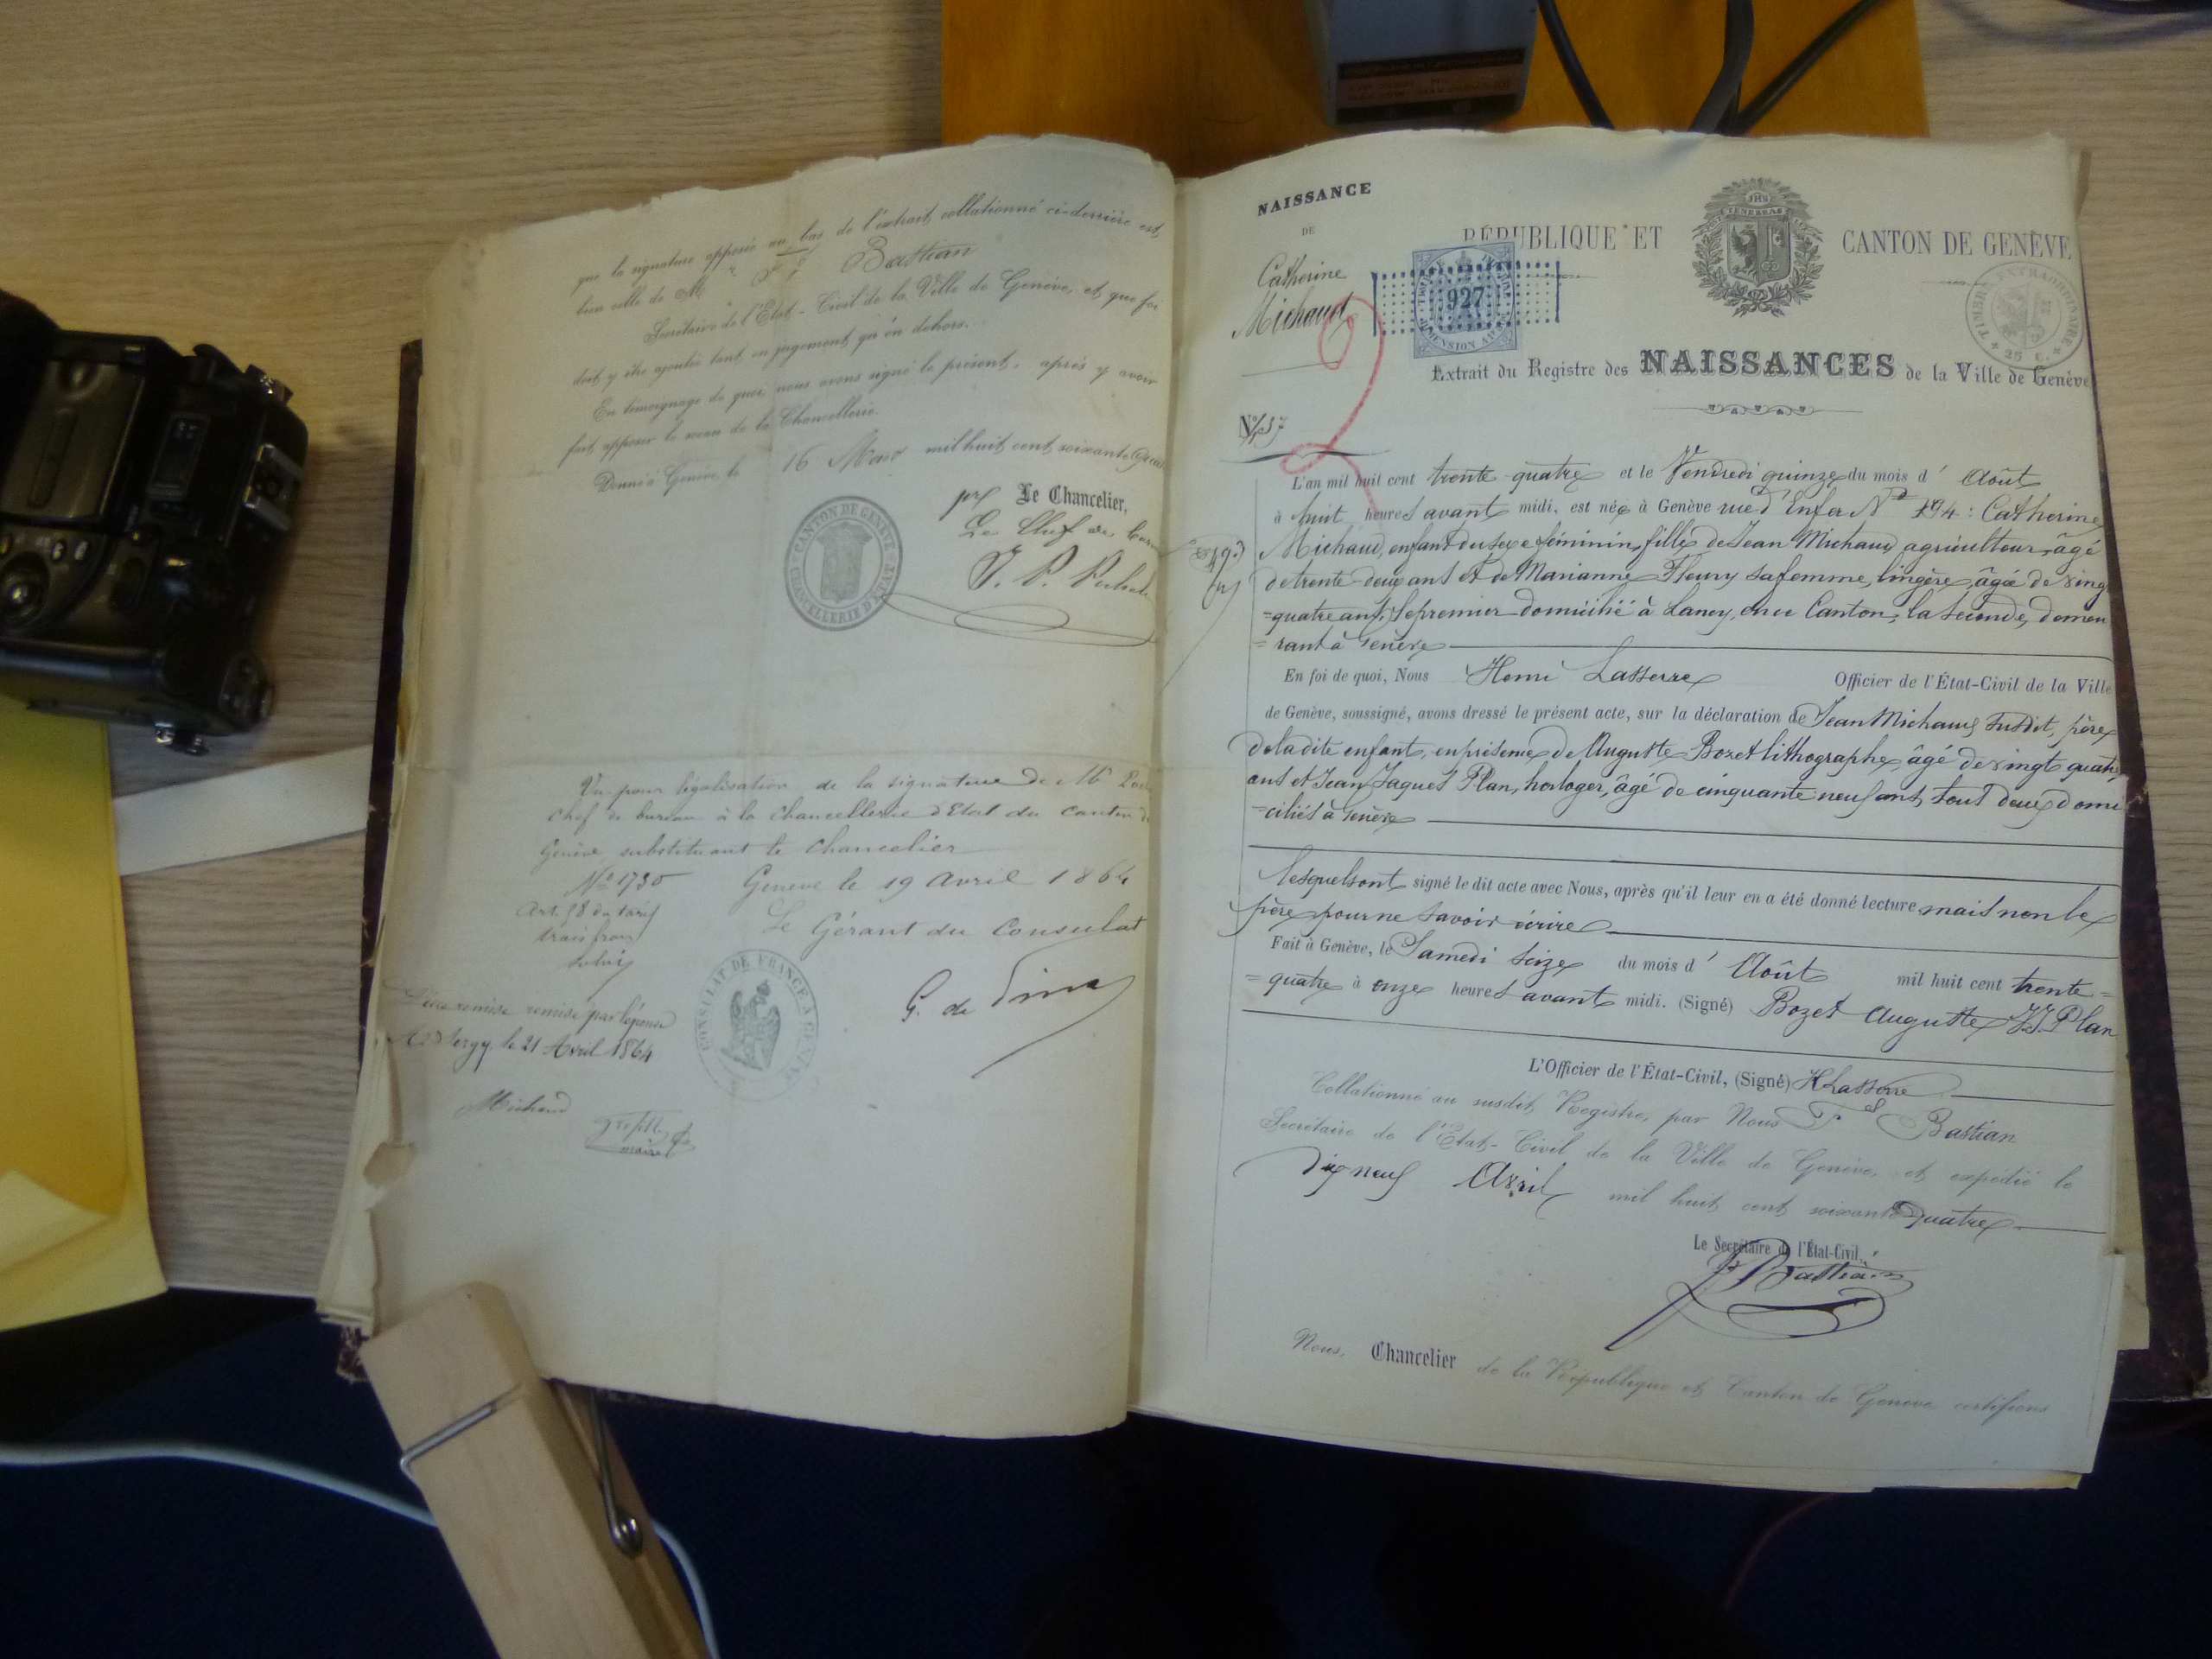 que la signature apposée au bas de l'extrait collationné ci-derrière est
bien celle de Mr Bastian
Secrétaire de l'Etat-Civil de la Ville de Genève, et que foi
doit y être ajoutée tant en jugement qu'en dehors.
En témoignage de quoi, nous avons signé le présent, après y avoir
fait apposer le sceau de la Chancellerie.
Donné à Genève, le 16 mil huit cent soixante
Le Chancelier,
Le Chef de
CANTON DE GENÈVE
CHANCELLERIE D'ETAT
Vu pour légalisation de la signature de Mr
chef de bureau à la Chancellerie d'Etat du Canton de
Genève substituant le Chancelier
No 1730 Genève le 19 Avril 1864
Art. 58 du tarif
Le Gérant du Consulat
G. de
CONSULAT DE FRANCE À GENÈVE
remise par l'épouse
le 21 Avril 1864
Michaud
maire
NAISSANCE
DE
Catherine
Michaud
RÉPUBLIQUE ET CANTON DE GENÈVE
927
DIMENSION
TIMBRE EXTRAORDINAIRE
25 C.
Extrait du Registre des NAISSANCES de la Ville de Genève
No
L'an mil huit cent trente-quatre et le Vendredi quinze du mois d'Août
à huit heures avant midi, est née à Genève rue d'Enfer No 194 : Catherine
Michaud, enfant du sexe féminin, fille de Jean Michaud agriculteur, âgé
de trente-deux ans et de Marianne Fleury sa femme, lingère, âgée de vingt
=quatre ans, le premier domicilié à Lancy, en ce Canton, la seconde, demeu
=rant à Genève
En foi de quoi, Nous Henri Lasserre Officier de l'État-Civil de la Ville
de Genève, soussigné, avons dressé le présent acte, sur la déclaration de Jean Michaud susdit, père
de la dite enfant, en présence de Auguste Bozet lithographe, âgé de vingt quatre
ans et Jean Jaques Plan, horloger, âgé de cinquante neuf ans, tous deux domi
=ciliés à Genève
lesquels ont signé le dit acte avec Nous, après qu'il leur en a été donné lecture mais non le
père pour ne savoir écrire
Fait à Genève, le Samedi seize du mois d'Août mil huit cent trente=
=quatre à onze heures avant midi. (Signé) Bozet Auguste J.J. Plan
L'Officier de l'État-Civil, (Signé) H Lasserre
Collationné au susdit Registre, par Nous Bastian
Secrétaire de l'Etat-Civil de la Ville de Genève, et expédié le
dix neuf Avril mil huit cent soixante quatre
Le Secrétaire de l'État-Civil,
Bastian
Nous, Chancelier de la République et Canton de Genève certifions